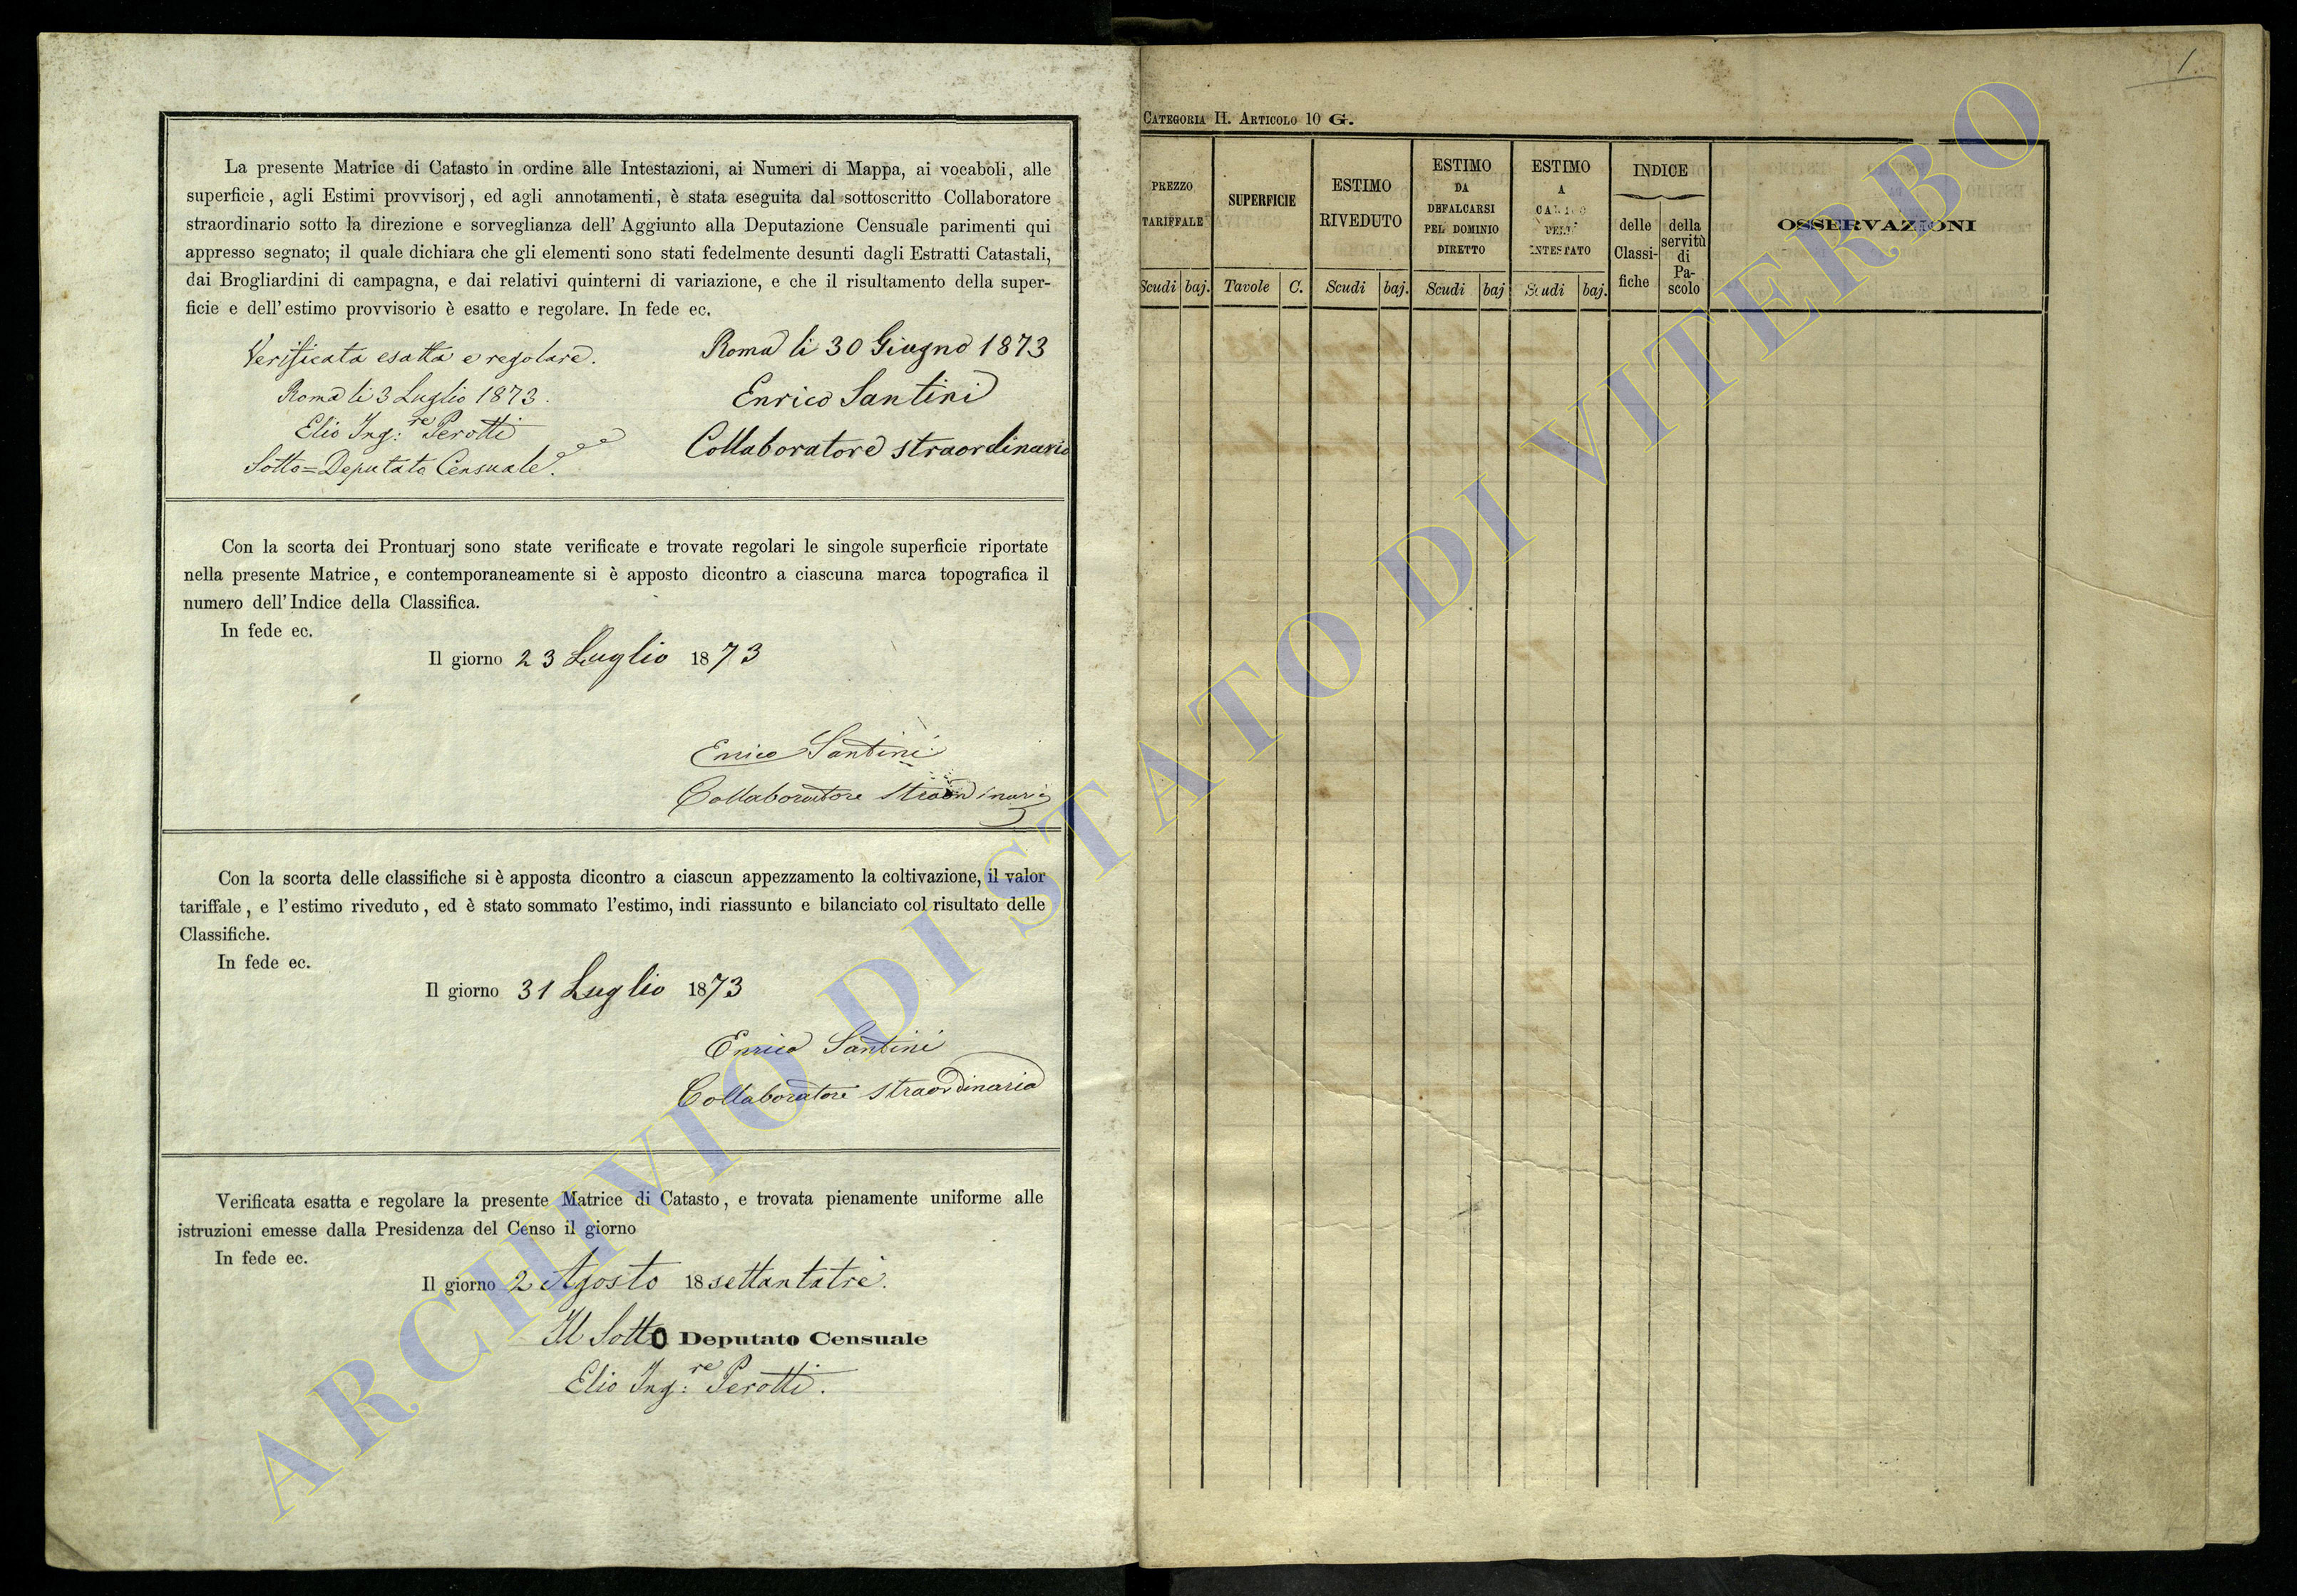 La presente Matrice di Catasto in ordine alle Intestazioni, ai Numeri di Mappa, ai vocaboli, alle
superficie, agli Estimi provvisorj, ed agli annotamenti, è stata eseguita dal sottoscritto Collaboratore
straordinario sotto la direzione e sorveglianza dell' Aggiunto alla Deputazione Censuale parimenti qui
appresso segnato; il quale dichiara che gli elementi sono stati fedelmente desunti dagli Estratti Catastali,
dai Brogliardini di campagna, e dai relativi quinterni di variazione, e che il risultamento della super-
ficie e dell' estimo provvisorio è esatto e regolare. In fede ec.
Verificata esatta e regolare.
Roma li 3 Luglio 1873.
Elio Ing:re Perotti
Sotto=Deputato Censuale.
Roma li 30 Giugno 1873
Enrico Santini
Collaboratore straordinario
Con la scorta dei Prontuarj sono state verificate e trovate regolari le singole superficie riportate
nella presente Matrice, e contemporaneamente si è apposto dicontro a ciascuna marca topografica il
numero dell' Indice della Classifica.
In fede ec.
Il giorno 23 Luglio 1873
Enrico Santini
Collaboratore straordinario
Con la scorta delle classifiche si è apposta dicontro a ciascun appezzamento la coltivazione, il valor
tariffale, e l'estimo riveduto, ed è stato sommato l'estimo, indi riassunto e bilanciato col risultato delle
Classifiche.
In fede ec.
Il giorno 31 Luglio 1873
Enrico Santini
Collaboratore straordinario
Verificata esatta e regolare la presente Matrice di Catasto, e trovata pienamente uniforme alle
istruzioni emesse dalla Presidenza del Censo il giorno
In fede ec.
Il giorno 2 Agosto 18settantatre.
Il Sotto Deputato Censuale
Elio Ing:re Perotti.
1
CATEGORIA II. ARTICOLO 10 G.
PREZZO
TARIFFALE
SUPERFICIE
ESTIMO
RIVEDUTO
ESTIMO
DA
DEFALCARSI
PEL DOMINIO
DIRETTO
ESTIMO
A
INTESTATO
INDICE
delle
Classi-
fiche
della
servitù
di
Pa-
scolo
OSSERVAZIONI
Scudi baj. Tavole C. Scudi baj. Scudi baj Scudi baj.
ARCHIVIO DI STATO DI VITERBO